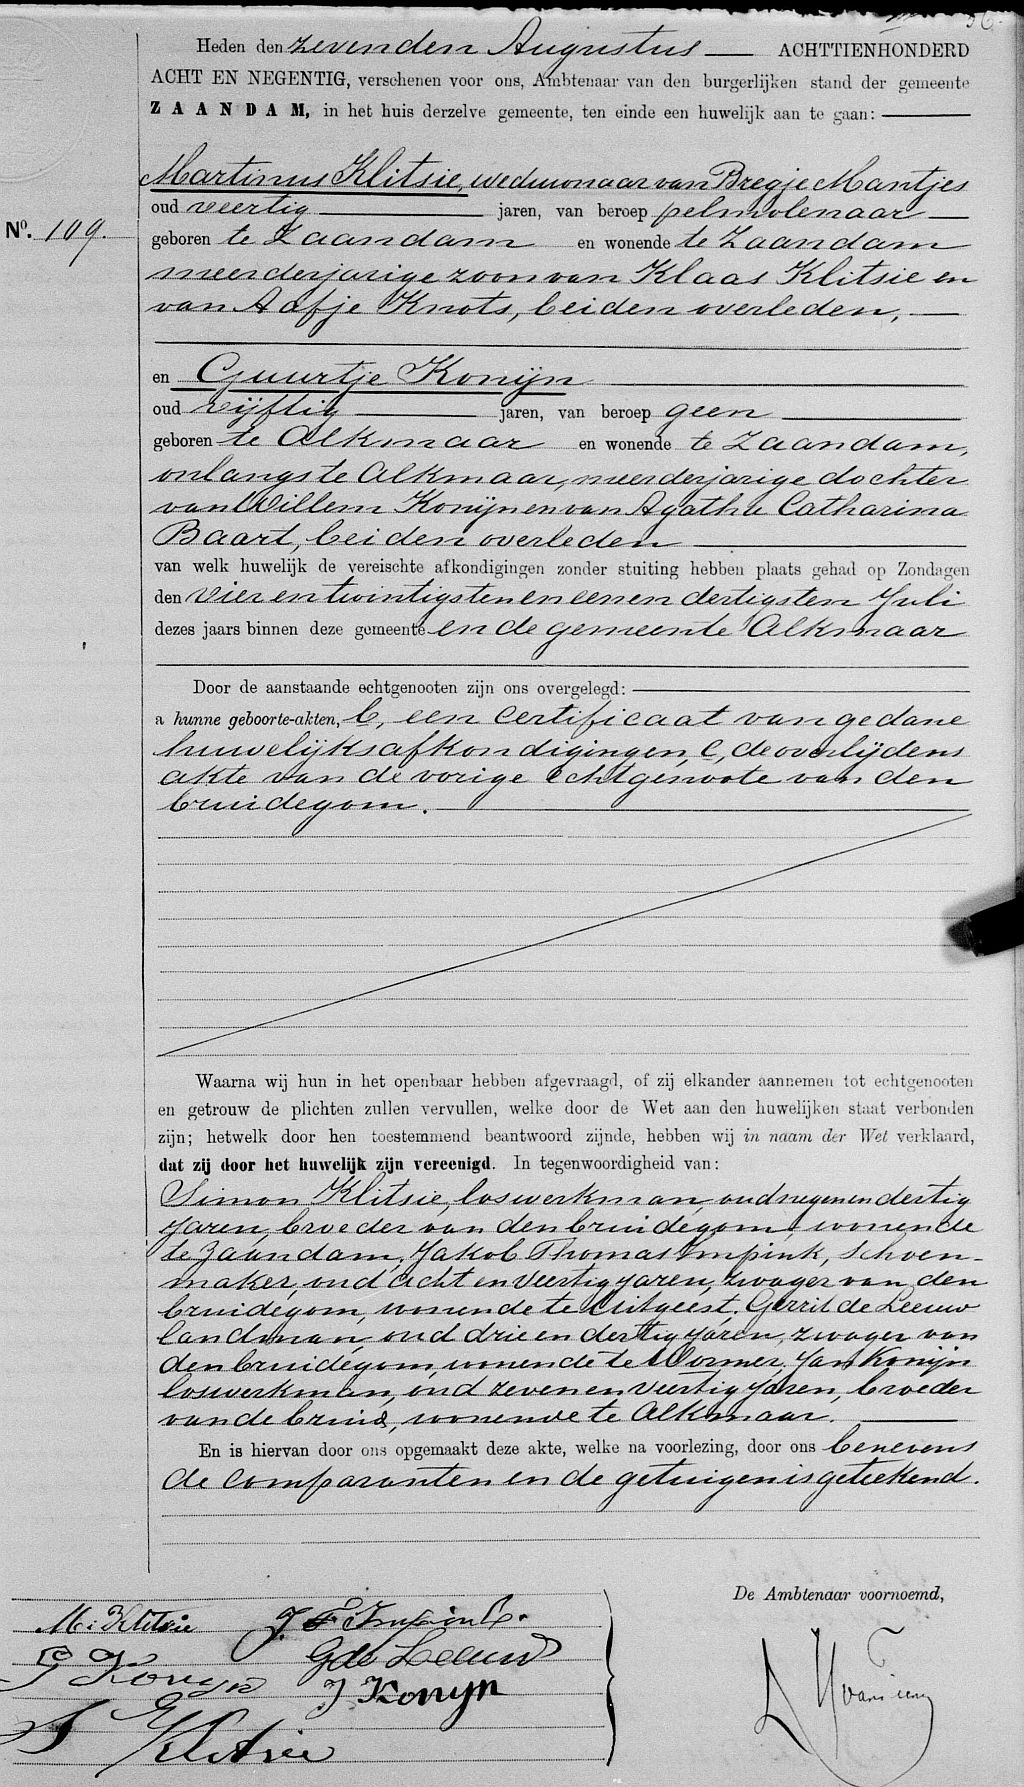 56.
Heden den zevenden Augustus ACHTTIENHONDERD
ACHT EN NEGENTIG, verschenen voor ons, Ambtenaar van den burgerlijken stand der gemeente
ZAANDAM, in het huis derzelve gemeente, ten einde een huwelijk aan te gaan:
Martinus Klitsie, weduwnaar van Bregje Mantjes
oud veertig jaren, van beroep pelmolenaar
No. 109.
geboren te Zaandam en wonende te Zaandam
meerderjarige zoon van Klaas Klitsie en
van Aafje Knots, beiden overleden,
en Guurtje Konijn
oud vijftig jaren, van beroep geen
geboren te Alkmaar en wonende te Zaandam,
onlangs te Alkmaar, meerderjarige dochter
van Willem Konijn en van Agatha Catharina
Baart, beiden overleden
van welk huwelijk de vereischte afkondigingen zonder stuiting hebben plaats gehad op Zondagen
den vier en twintigsten en eenen dertigsten Juli
dezes jaars binnen deze gemeente en de gemeente Alkmaar
Door de aanstaande echtgenooten zijn ons overgelegd:
a hunne geboorte-akten, b, een certificaat van gedane
huwelijksafkondigingen, c, de overlijdens
akte van de vorige echtgenoote van den
bruidegom.
Waarna wij hun in het openbaar hebben afgevraagd, of zij elkander aannemen tot echtgenooten
en getrouw de plichten zullen vervullen, welke door de Wet aan den huwelijken staat verbonden
zijn; hetwelk door hen toestemmend beantwoord zijnde, hebben wij in naam der Wet verklaard,
dat zij door het huwelijk zijn vereenigd. In tegenwoordigheid van:
Simon Klitsie, loswerkman, oud negenendertig
jaren, broeder van den bruidegom, wonende
te Zaandam, Jakob Thomas Impink, schoen-
maker, oud acht en veertig jaren, zwager van den
bruidegom, wonende te Uitgeest, Gerrit de Leeuw
landman, oud drie en dertig jaren, zwager van
den bruidegom, wonende te Wormer, Jan Konijn
loswerkman, oud zevenenveertig jaren, broeder
van de bruid, wonende te Alkmaar.
En is hiervan door ons opgemaakt deze akte, welke na voorlezing, door ons benevens
de comparanten en de getuigen is geteekend.
De Ambtenaar voornoemd,
M: Klitsie J. T Impink.
G Konijn G de Leeuw
J Konyn
S Klitsie